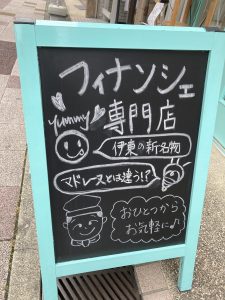 フィナンシェ
yummy
専門店
伊東の新名物
マドレーヌとは違う!?
おひとつから
お気軽に♪